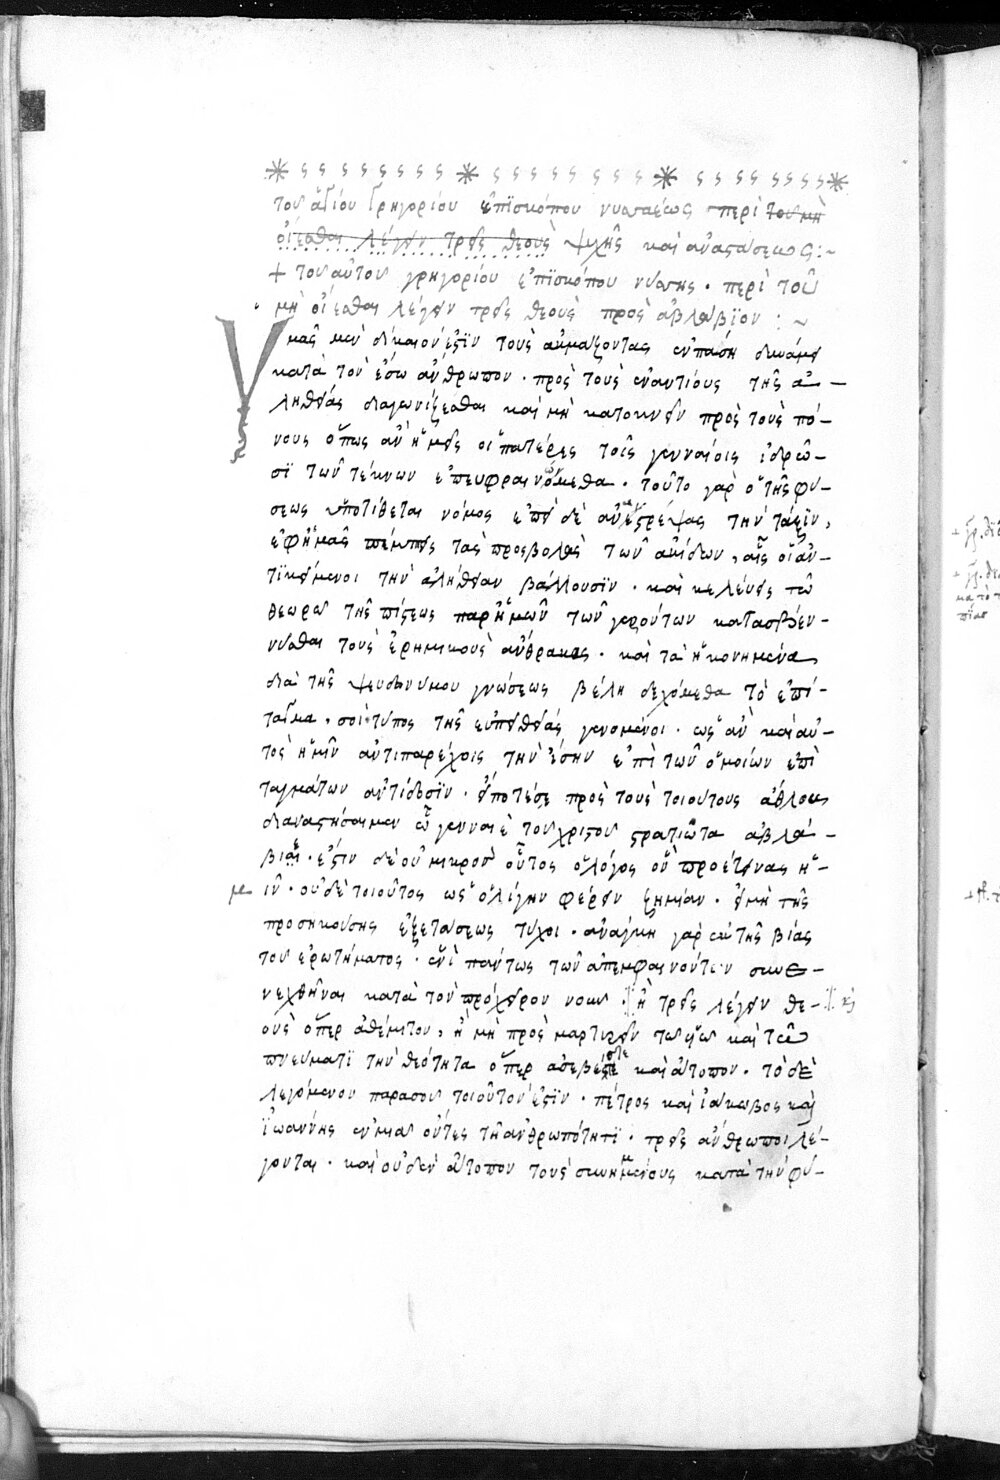 τοῦ ἁγίου Γρηγορίου ἐπϊσκόπου νυσσαέως περὶ τοῦ μὴ
οἴεσθαι λέγειν τρεῖς θεοὺς ψυχῆς καὶ ἀναστάσεως :~
+ τοῦ αὐτοῦ γρηγορίου ἐπϊσκόπου νύσσης · περὶ τοῦ
μὴ οἴεσθαι λέγειν τρεῖς θεοὺς πρὸς ἀβλάβϊον : ~
Ὑμᾶς μὲν δίκαιόν ἐστϊν τοὺς ἀκμάζοντας ἐν πάσῃ δυνάμει
κατὰ τὸν ἔσω ἄνθρωπον · πρὸς τοὺς ἐναντίους τῆς ἀ–
ληθείας διαγωνίζεσθαι καὶ μὴ κατοκνεῖν πρὸς τοὺς πό–
νους ὅπως ἂν ἡμεῖς οἱ πατέρες τοῖς γενναίοις ἱδρῶ–
σϊ τῶν τέκνων ἐπευφραινώμεθα · τοῦτο γὰρ ὁ τῆς φύ–
σεως ὑποτίθεται νόμος ἐπεὶ δὲ ἀναστρέψας τὴν τάξϊν,
ἐφ' ἡμᾶς πέμπεις τὰς προσβολὰς τῶν ἀκίδων, αἷς οἱ ἀν–
τϊκείμενοι τὴν ἀλήθειαν βάλλουσϊν · καὶ κελεύεις τῷ
θεωρῷ τῆς πίστεως παρ' ἡμῶν τῶν γερόντων κατασβέν–
νυσθαι τοὺς ἐρημικοὺς ἄνθρακας · καὶ τὰ ἠκονημένα
διὰ τῆς ψευδωνύμου γνώσεως βέλη δεχόμεθα τὸ ἐπί–
ταγμα, σοὶ τύπος τῆς εὐπειθείας γενόμενοι · ὡς ἂν καὶ αὐ–
τὸς ἡμῖν ἀντιπαρέχοις τὴν ἴσην ἐπὶ τῶν ὁμοίων ἐπϊ
ταγμάτων ἀντίδοσϊν · εἴποτέ σε πρὸς τοὺς τοιούτους ἄθλους
διαναστήσαιμεν ὦ γενναῖε τοῦ χριστοῦ στρατιῶτα ἀβλά–
βιε · ἔστϊν δὲ οὐ μικρὸς οὗτος ὁ λόγος ὃν προέτεινας ἡ–
μῖν · οὐδὲ τοιοῦτος ὡς ὀλίγην φέρειν ζημίαν · εἰ μὴ τῆς
προσηκούσης ἐξετάσεως τύχοι · ἀνάγκη γὰρ ἐκ τῆς βίας
τοῦ ἐρωτήματος · ἑνὶ πάντως τῶν ἀπεμφαινόντων συνε–
νεχθῆναι κατὰ τὸν πρόχειρον νοῦν · ἢ τρεῖς λέγειν θε–
οὺς ὅπερ ἀθέμιτον, ἢ μὴ προσμαρτυρεῖν τῷ υἱῷ καὶ τῷ
πνεύματϊ τὴν θεότητα ὅπερ ἀσεβές τε καὶ ἄτοπον · τὸ δὲ
λεγόμενον παρὰ σοῦ τοιοῦτόν ἐστϊν · πέτρος καὶ ἰάκωβος καὶ
ἰωάννης ἐν μιᾷ ὄντες τῇ ἀνθρωπότητϊ · τρεῖς ἄνθρωποι λέ–
γονται · καὶ οὐδὲν ἄτοπον τοὺς συνημμένους κατὰ τὴν φύ–